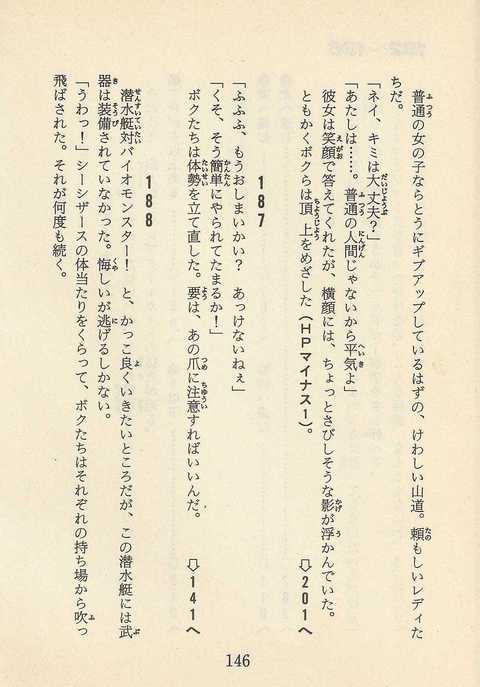 普通の女の子ならとうにギブアップしているはずの、けわしい山道。頼もしいレディた
ちだ。
「ネイ、キミは大丈夫？」
「あたしは……。普通の人間じゃないから平気よ」
彼女は笑顔で答えてくれたが、横顔には、ちょっとさびしそうな影が浮かんでいた。
ともかくボクらは頂上をめざした（ＨＰマイナス１）。
⇨２０１へ
１８７
「ふふふ、もうおしまいかい？　あっけないねぇ」
「くそ、そう簡単にやられてたまるか！」
ボクたちは体勢を立て直した。要は、あの爪に注意すればいいんだ。
⇨１４１へ
１８８
潜水艇対バイオモンスター！　と、かっこ良くいきたいところだが、この潜水艇には武
器は装備されていなかった。悔しいが逃げるしかない。
「うわっ！」シーシザースの体当たりをくらって、ボクたちはそれぞれの持ち場から吹っ
飛ばされた。それが何度も続く。
146